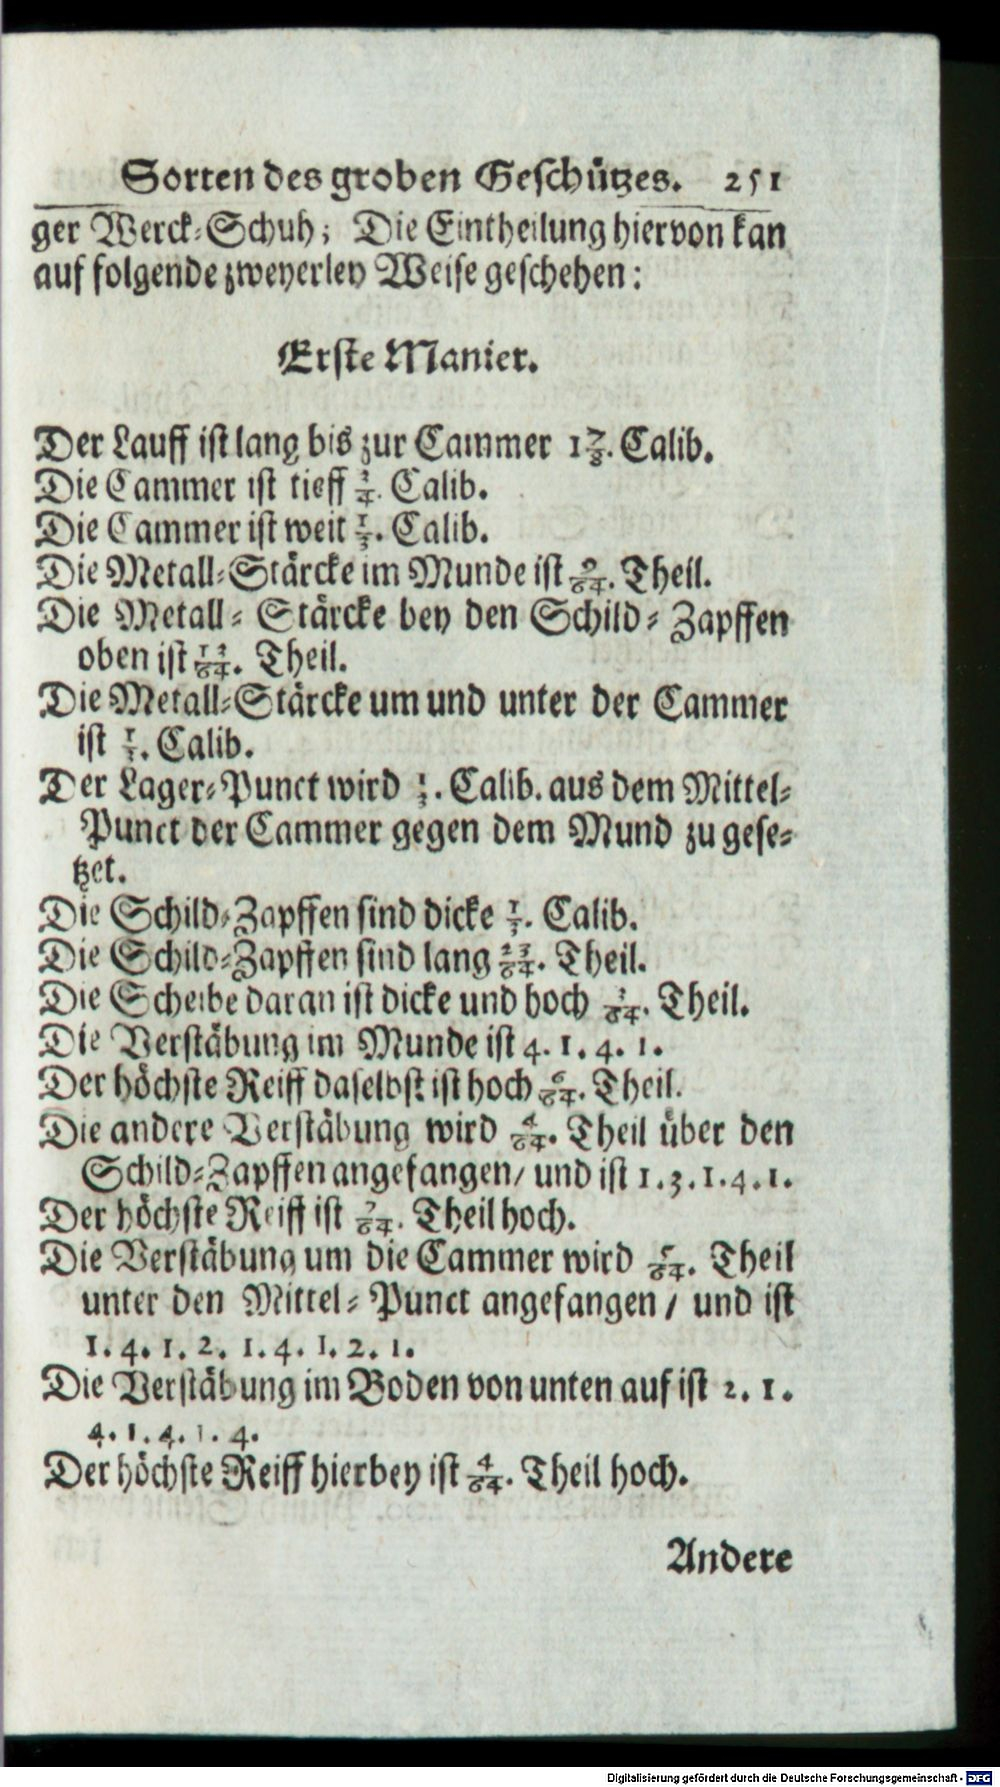 Sorten des groben Geschützes. 251
ger Werck-Schuh; Die Eintheilung hiervon kan
auf folgende zweyerley Weise geschehen:
Erste Manier.
Der Lauff ist lang bis zur Cammer 1 7/8. Calib.
Die Cammer ist tieff 3/4. Calib.
Die Cammer ist weit 1/3. Calib.
Die Metall-Stärcke im Munde ist 9/64. Theil.
Die Metall-Stärcke bey den Schild-Zapffen
oben ist 12/64. Theil.
Die Metall-Stärcke um und unter der Cammer
ist Calib.
Der Lager-Punct wird Calib. aus dem Mittel-
Punct der Cammer gegen dem Mund zu gese-
tzet.
Die Schild-Zapffen sind dicke 1/3. Calib.
Die Schild-Zapffen sind lang 23/64. Theil.
Die Scheibe daran ist dicke und hoch 3/64. Theil.
Die Verstäbung im Munde ist 4. 1. 4. 1.
Der höchste Reiff daselbst ist hoch 6/64. Theil.
Die andere Verstäbung wird 4/64. Theil über den
Schild-Zapffen angefangen/ und ist 1. 3. 1. 4. 1.
Der höchste Reiff ist 7/64. Theil hoch.
Die Verstäbung um die Cammer wird 5/64. Theil
unter den Mittel-Punct angefangen/ und ist
1. 4. 1. 2. 1. 4. 1. 2. 1.
Die Verstäbung im Boden von unten auf ist 2. 1.
4. 1. 4. 1. 4.
Der höchste Reiff hierbey ist 4/64. Theil hoch.
Andere
Digitalisierung gefördert durch die Deutsche Forschungsgemeinschaft - DFG